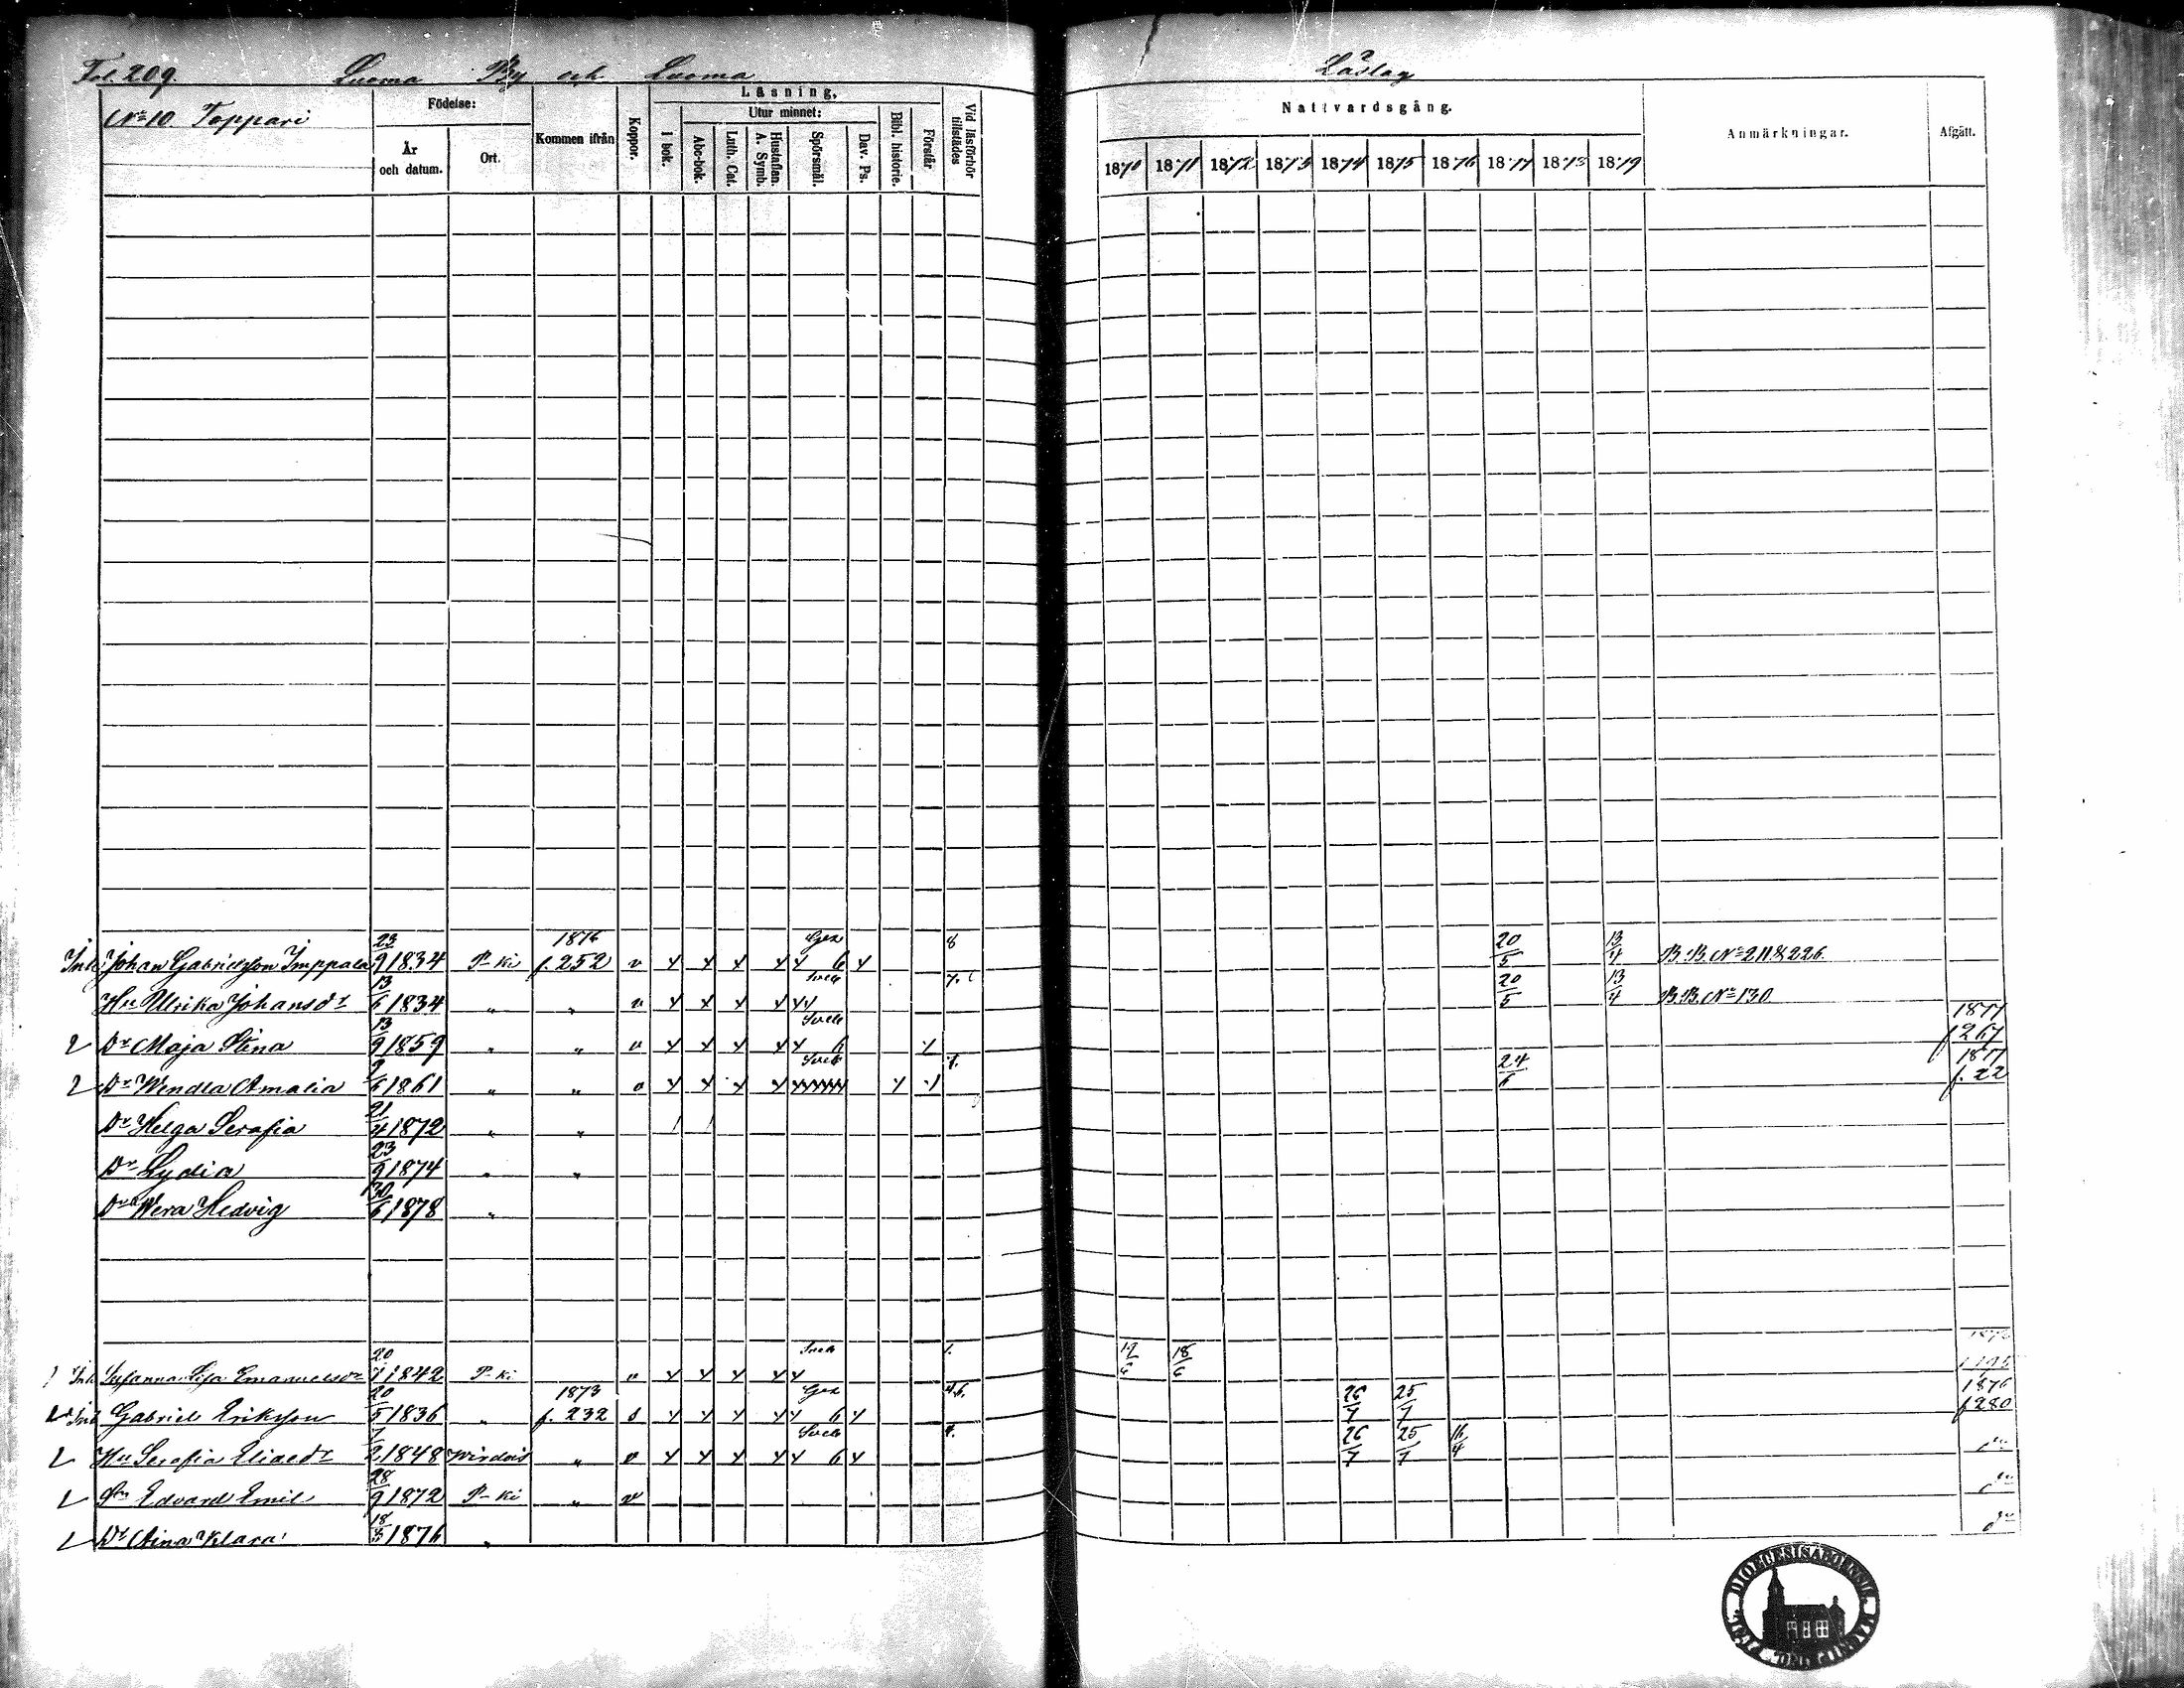 Fol. 209. Luoma By och Luoma Läslag
No 10. Toppari
Födelse:
År och datum.
Ort.
Kommen ifrån
Koppor.
Läsning.
I bok.
Utur minnet:
Abc-bok.
Luth. Cat.
Hustaflan. A. Symb.
Spörsmål.
Dav. Ps.
Bibl. historie.
Förstår
Vid läsförhör tillstädes
Nattvardsgång.
1870 1871 1872 1873 1874 1875 1876 1877 1878 1879
Anmärkningar.
Afgått.
Inh. Johan Gabrielsson Imppala 23/9 1834 P-ki 1876 f. 252 v 8 20/5 13/4 B.B. No 211 & 226
Hu Ulrika Johansdr 13/6 1834 " " v 20/5 13/4 B.B. No 130
2 Dr Maja Stina 13/9 1859 " " v 1877 f 267
2 Dr Wendla Amalia 9/6 1861 " " v 24/6 1877 f. 22
Dr Helga Serafia 21/4 1872 " "
Dr Lydia 23/9 1874 " "
Dr Wera Hedvig 30/6 1878 "
Inh Susanna Lisa Emanuelsdr 20/7 1842 P-ki v 18/6
Inh Gabriel Eriksson 20/5 1836 " 1873 f. 232 26/7 25/7 1876 f 280
Hu Serafia Eliaedr 7/2 1848 Wirdois " v 26/7 25/7 16/4 do
Son Edvard Emil 28/9 1872 P-ki " v do
Dr Aina Klara 18/3 1876 " do
DIOECESIS ABOENSIS